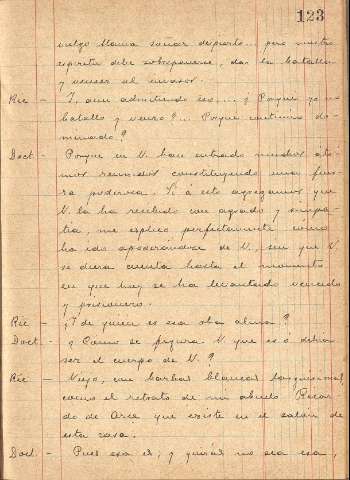 123
vulgo llama soñar despierto... pero nuestro
espíritu debe sobreponerse, dar la batalla
y vencer al invasor.
Ric - Y, aun admitiendo eso..., ¿Porqué yo no
batallo y venzo?... Porque continúo do-
minado?
Doct.- Porque en V. han entrado muchos áto-
mos reunidos constituyendo una fuer-
za poderosa. Si á esto agregamos que
V. la ha recibido con agrado y simpa-
tia, me esplico perfectamente como
ha ido apoderándose de V., sin que V.
se diera cuenta hasta el momento
en que hoy se ha levantado vencido
y prisionero.
Ric - ¿Y de quien es esa otra alma?
Doct.- ¿Como se figura V. que es ó debia
ser el cuerpo de V.?
Ric - Viejo, con barbas blancas larguisimas,
como el retrato de mi abuelo Ricar-
do de Arce que existe en el salon de
esta casa.
Doct.- Pues esa es; y quizás no sea esa,